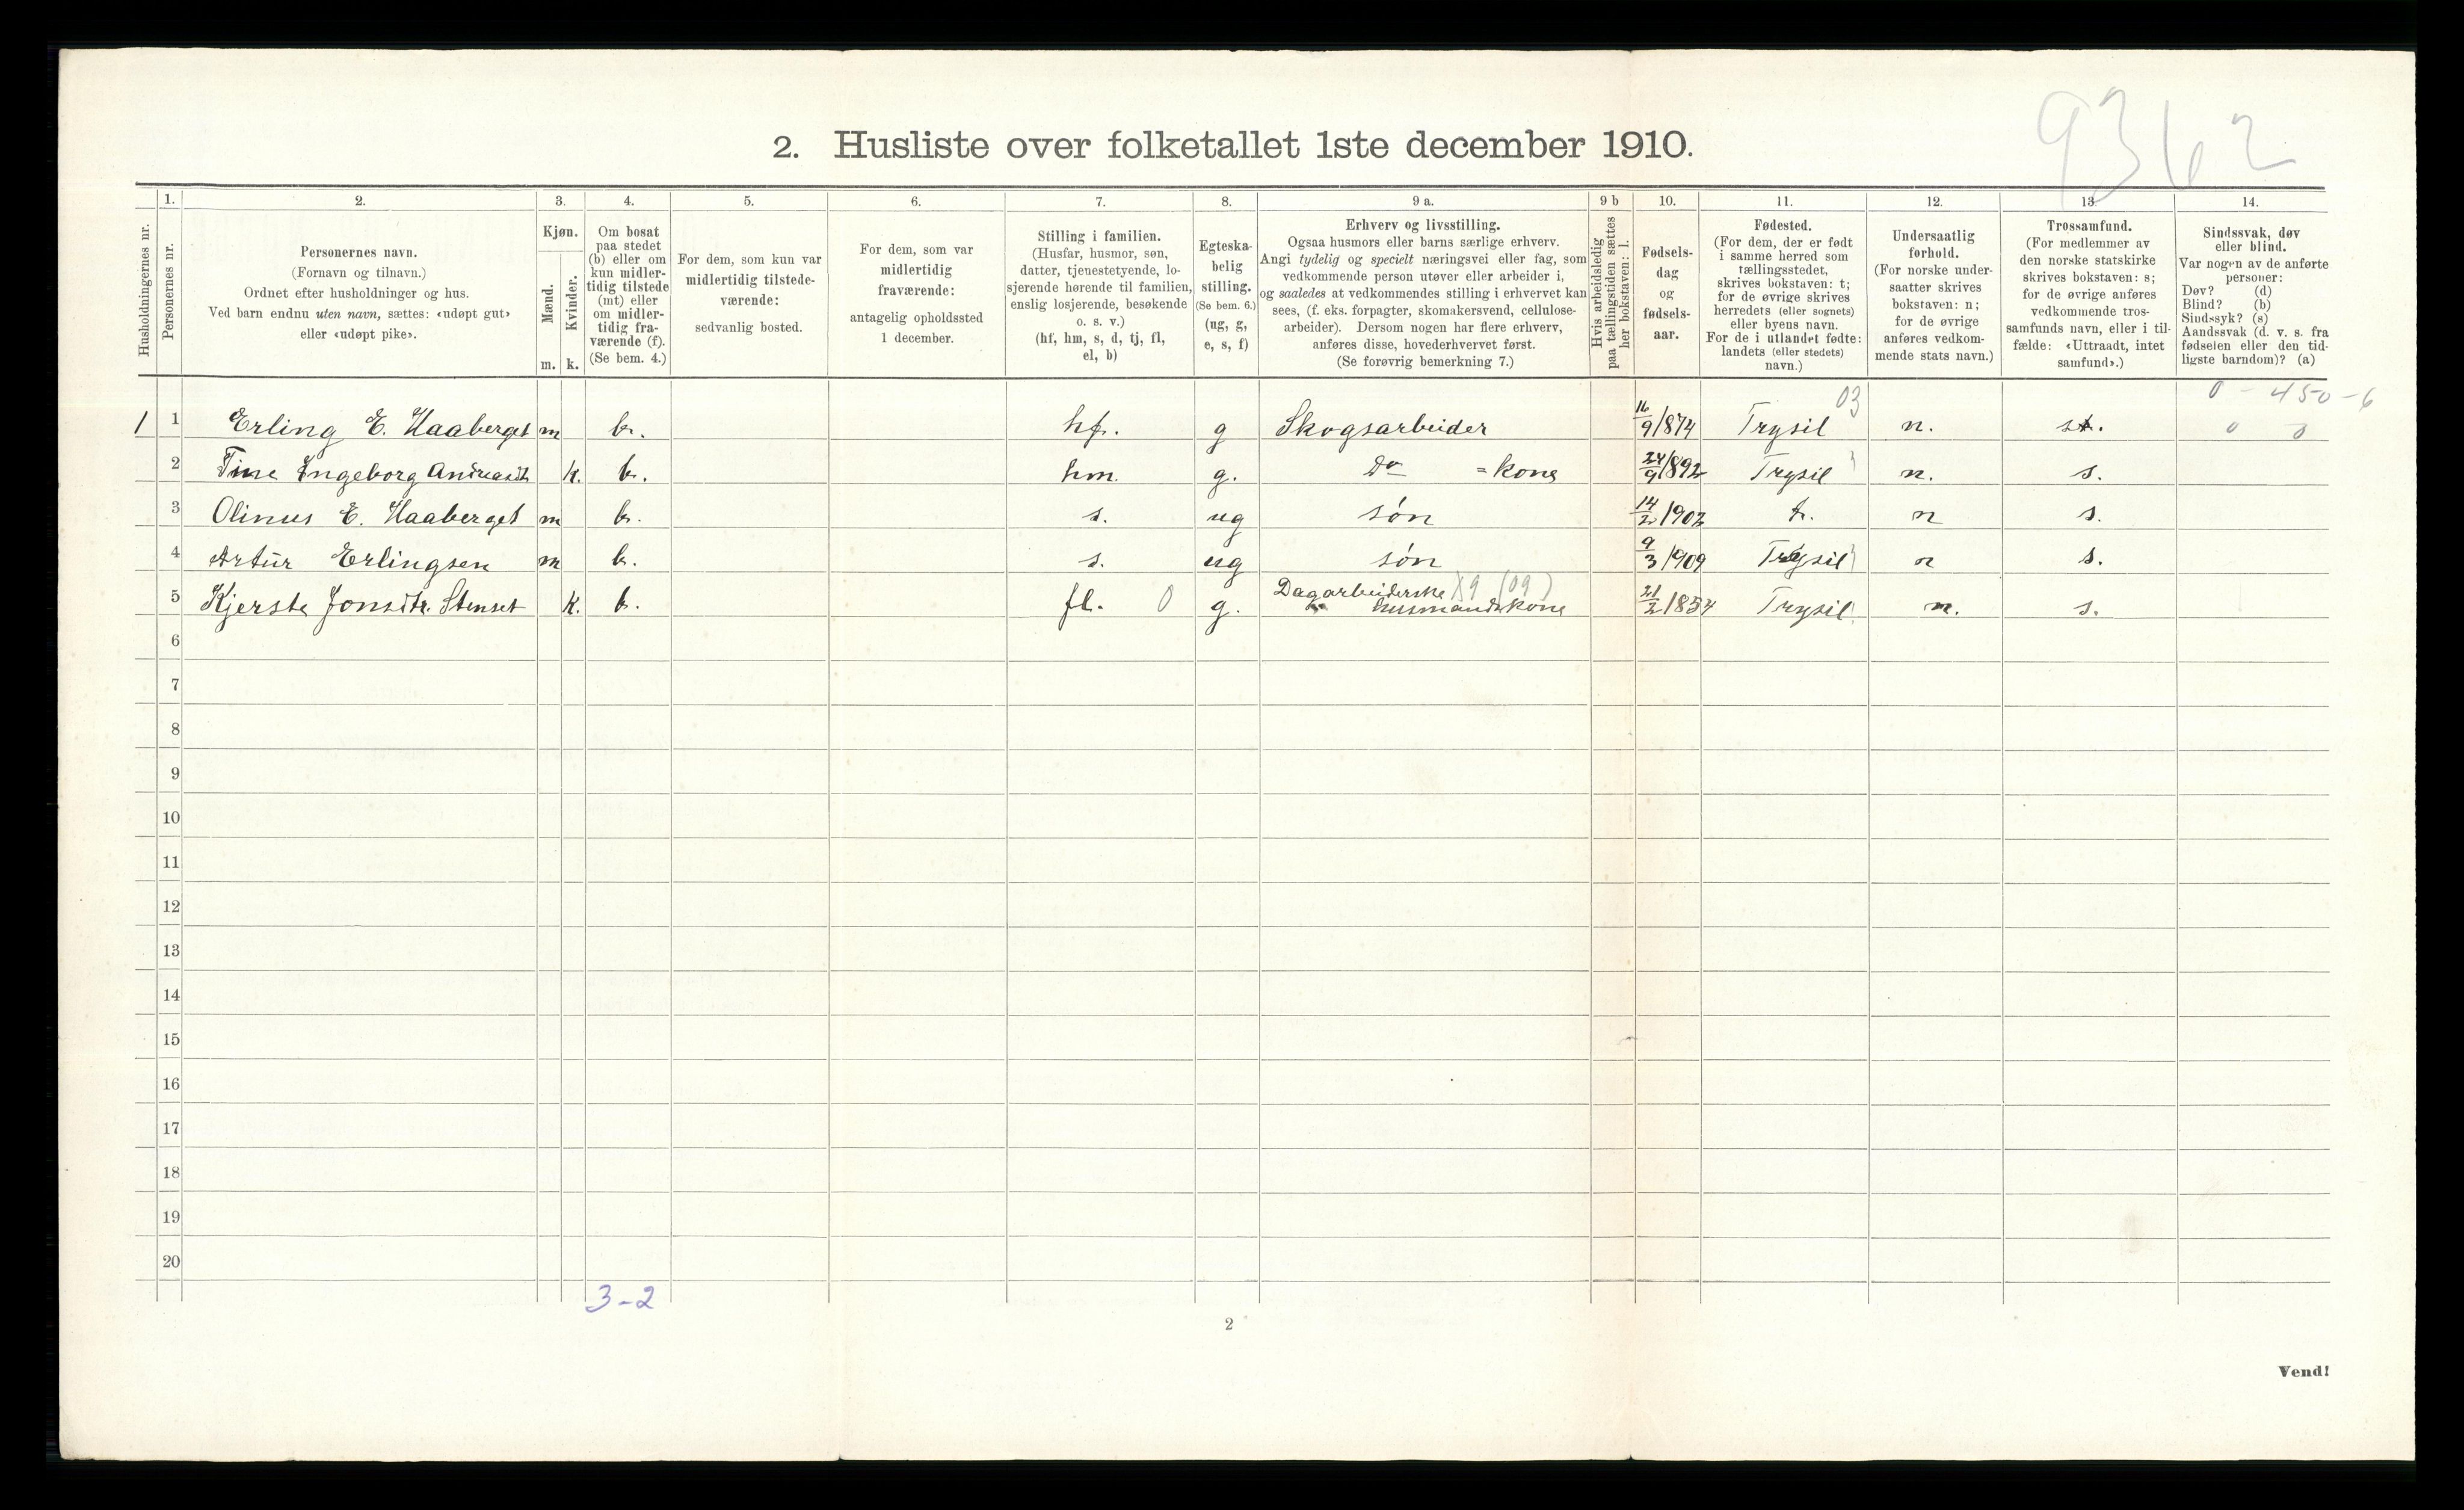 9362
2. Husliste over folketallet 1ste december 1910.
Husholdningernes nr.
1.
Personernes nr.
2.
Personernes navn.
(Fornavn og tilnavn.)
Ordnet efter husholdninger og hus.
Ved barn endnu uten navn, sættes: «udøpt gut»
eller «udøpt pike».
3.
Kjøn.
Mænd.
Kvinder.
m. k.
4.
Om bosat
paa stedet
(b) eller om
kun midler-
tidig tilstede
(mt) eller
om midler-
tidig fra-
værende (f).
(Se bem. 4.)
5.
For dem, som kun var
midlertidig tilstede-
værende:
sedvanlig bosted.
6.
For dem, som var
midlertidig
fraværende:
antagelig opholdssted
1 december.
7.
Stilling i familien.
(Husfar, husmor, søn,
datter, tjenestetyende, lo-
sjerende hørende til familien,
enslig losjerende, besøkende
o. s. v.)
(hf, hm, s, d, tj, fl,
el, b)
8.
Egteska-
belig
stilling.
(Se bem. 6.)
(ug, g,
e, s, f)
9 a.
Erhverv og livsstilling.
Ogsaa husmors eller barns særlige erhverv.
Angi tydelig og specielt næringsvei eller fag, som
vedkommende person utøver eller arbeider i,
og saaledes at vedkommendes stilling i erhvervet kan
sees, (f. eks. forpagter, skomakersvend, cellulose-
arbeider). Dersom nogen har flere erhverv,
anføres disse, hovederhvervet først.
(Se forøvrig bemerkning 7.)
9 b
Hvis arbeidsledig
paa tællingstiden sættes
her bokstaven: l.
10.
Fødsels-
dag
og
fødsels-
aar.
11.
Fødested.
(For dem, der er født
i samme herred som
tællingsstedet,
skrives bokstaven: t;
for de øvrige skrives
herredets (eller sognets)
eller byens navn.
For de i utlandet fødte:
landets (eller stedets)
navn.)
12.
Undersaatlig
forhold.
(For norske under-
saatter skrives
bokstaven: n;
for de øvrige
anføres vedkom-
mende stats navn.)
13.
Trossamfund.
(For medlemmer av
den norske statskirke
skrives bokstaven: s;
for de øvrige anføres
vedkommende tros-
samfunds navn, eller i til-
fælde: «Uttraadt, intet
samfund».)
14.
Sindssvak, døv
eller blind.
Var nogen av de anførte
personer:
Døv? (d)
Blind? (b)
Sindssyk? (s)
Aandssvak (d. v. s. fra
fødselen eller den tid-
ligste barndom)? (a)
03 0 - 450-6
1 1 Erling E. Haaberget m b. hf. g Skogsarbeider 16/9/874 Trysil n. s. 0 0
2 Tine Ingeborg Andreasdt k. b. hm. g. Do =kone 24/9/892 Trysil n. s.
3 Olinus E. Haaberget m b. s. ug søn 14/2/902 t. n s.
4 Artur Erlingsen m b. s. ug søn 9/3/909 Trysil n s.
5 Kjerste Jonsdtr. Stenset k. b. fl. 0 g. Dagarbeiderske X9 (09) husmandskone 21/2/854 Trysil n. s.
6
7
8
9
10
11
12
13
14
15
16
17
18
19
20
3-2
2
Vend!